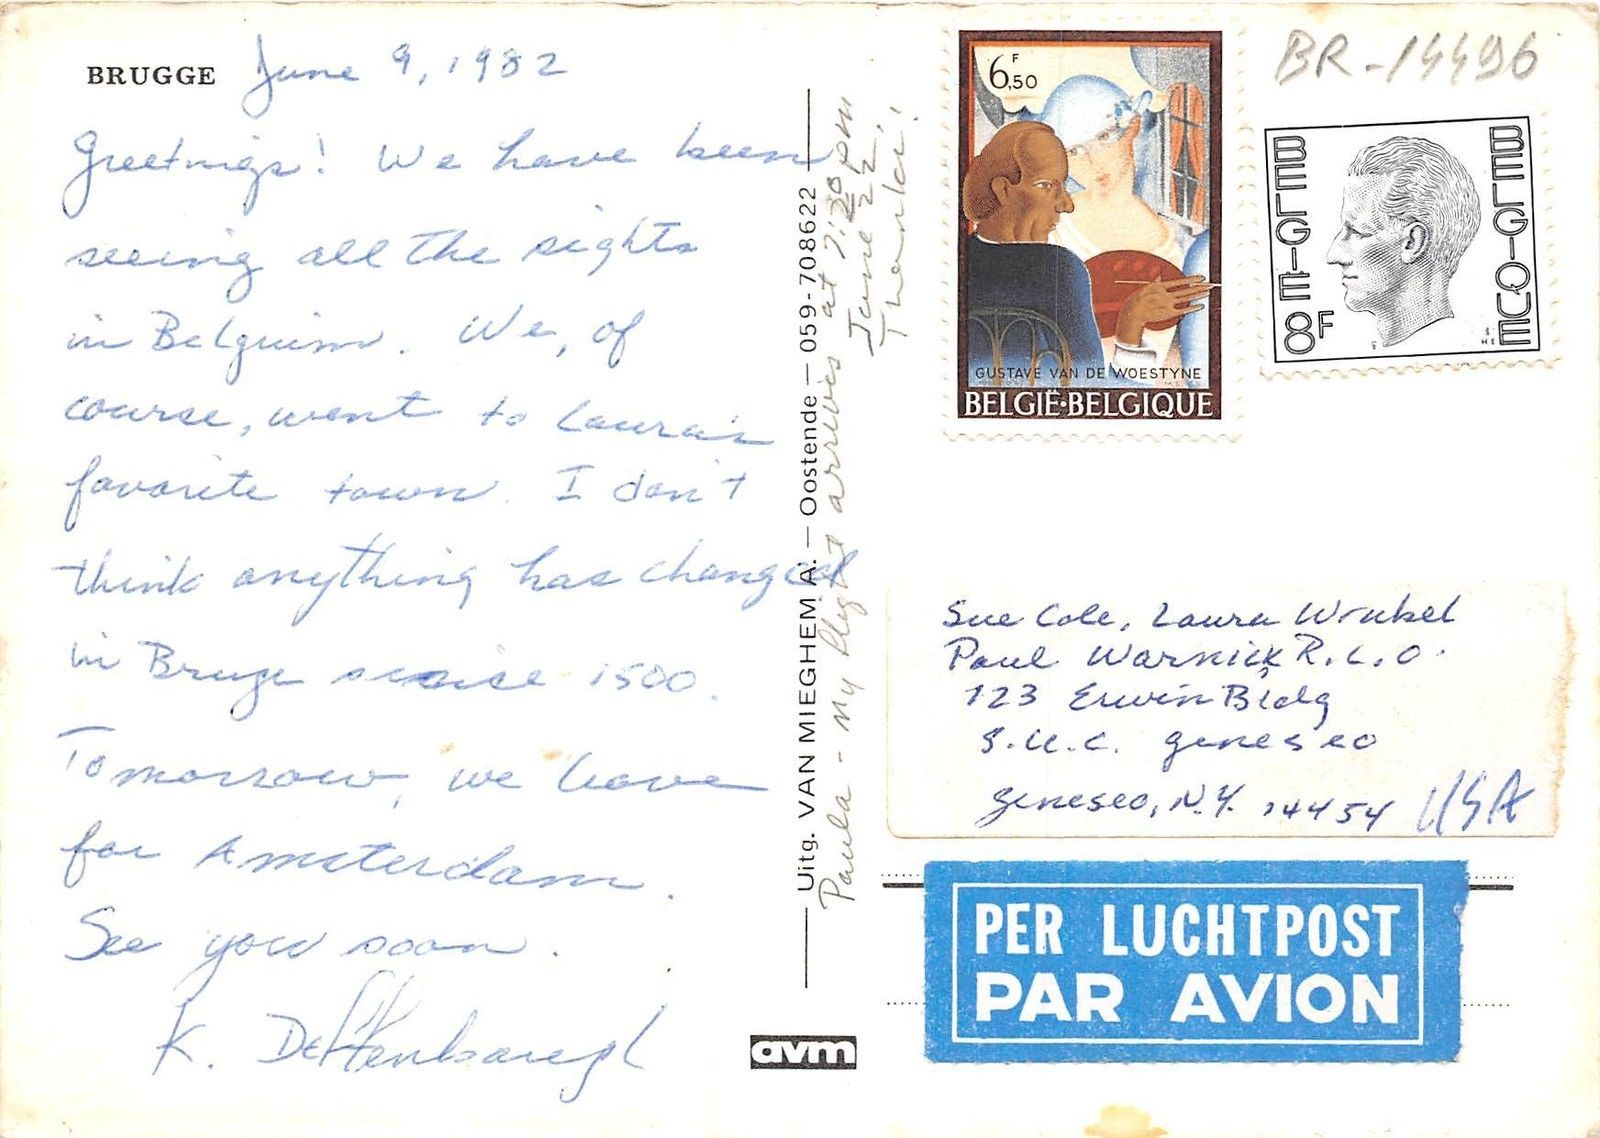 BRUGGE June 9, 1982
Greetings! We have been
seeing all the sights
in Belguim. We, of
course, went to Laura's
favorite town. I don't
think anything has changed
in Bruge since 1500.
Tomorrow, we leave
for Amsterdam.
See you soon.
K.
Uitg. VAN MIEGHEM A. — Oostende — 059-708622
Paula - My flight arrives at 7:20 pm
June 22.
Thanks!
avm
6F,50
GUSTAVE VAN DE WOESTYNE
BELGIË·BELGIQUE
BR-14496
BELGIE
8F
BELGIQUE
Sue Cole, Laura Wrubel
Paul Warnick, R.L.O.
123 Erwin Bldg
S.U.C. Geneseo
Geneseo, N.Y. 14454 USA
PER LUCHTPOST
PAR AVION